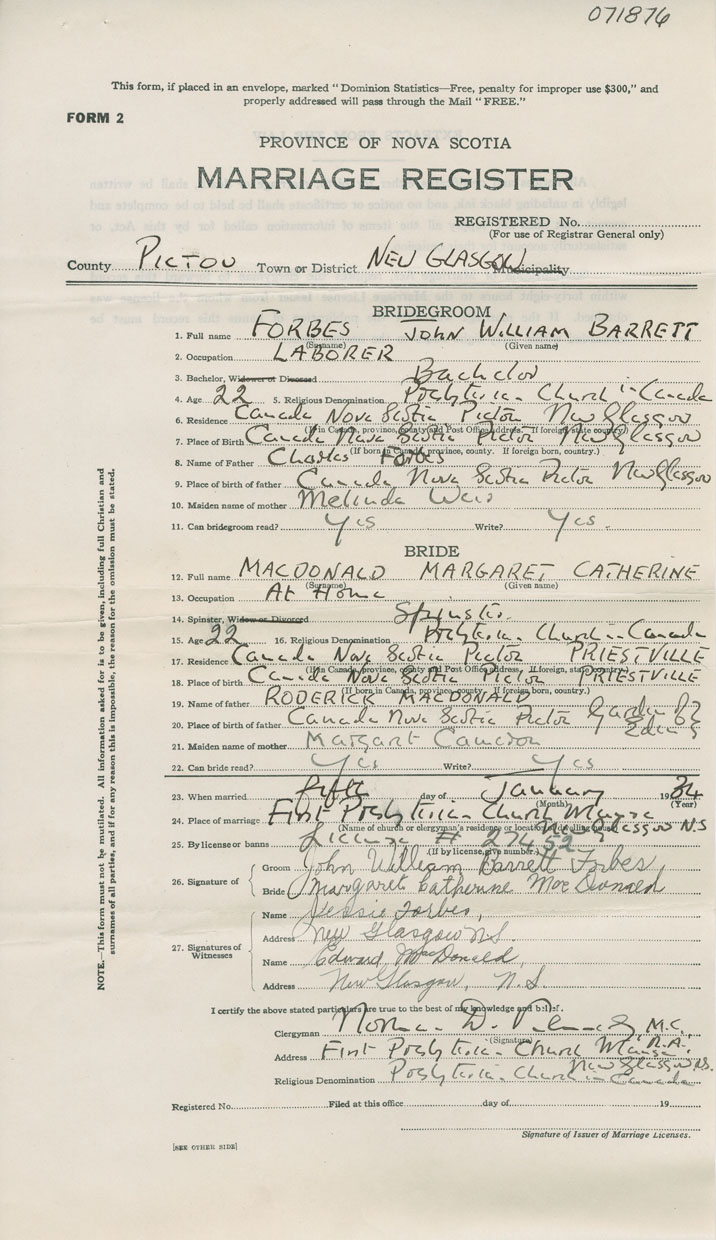 071876
This form, if placed in an envelope, marked "Dominion Statistics—Free, penalty for improper use $300," and
properly addressed will pass through the Mail "FREE."
FORM 2
PROVINCE OF NOVA SCOTIA
MARRIAGE REGISTER
REGISTERED No.
(For use of Registrar General only)
County PICTOU Town or District NEW GLASGOW Municipality
BRIDEGROOM
1. Full name FORBES JOHN WILLIAM BARRETT
(Surname) (Given name)
2. Occupation LABORER
3. Bachelor, Widower or Divorced Bachelor
4. Age 22 5. Religious Denomination Presbyterian Church in Canada
6. Residence Canada Nova Scotia Pictou New Glasgow
(If in Canada, province, county and Post Office address. If foreign state country)
7. Place of Birth Canada Nova Scotia Pictou New Glasgow
(If born in Canada, province, county. If foreign born, country.)
8. Name of Father Charles Forbes
9. Place of birth of father Canada Nova Scotia Pictou New Glasgow
10. Maiden name of mother Melinda Weir
11. Can bridegroom read? Yes Write? Yes.
BRIDE
12. Full name MACDONALD MARGARET CATHERINE
(Surname) (Given name)
13. Occupation At Home
14. Spinster, Widow or Divorced Spinster
15. Age 22 16. Religious Denomination Presbyterian Church in Canada
17. Residence Canada Nova Scotia Pictou PRIESTVILLE
(If in Canada, province, county and Post Office address. If foreign, state country)
18. Place of birth Canada Nova Scotia Pictou PRIESTVILLE
(If born in Canada, province, county. If foreign born, country.)
19. Name of father RODERICK MACDONALD
20. Place of birth of father Canada Nova Scotia Pictou Garden of Eden
21. Maiden name of mother Margaret Cameron
22. Can bride read? Yes Write? Yes
23. When married fifth day of January 1934
(Month) (Year)
24. Place of marriage First Presbyterian Church Manse
New Glasgow N.S
(Name of church or clergyman's residence or location of dwelling house)
25. By license or banns License # 27452
(If by license, give number.)
26. Signature of
Groom John William Barrett Forbes
Bride Margaret Catherine MacDonald
27. Signatures of Witnesses
Name Jessie Forbes,
Address New Glasgow N.S
Name Edward MacDonald,
Address New Glasgow, N.S.
I certify the above stated particulars are true to the best of my knowledge and belief.
Clergyman Norman D. M.C.,
(Signature)
Address First Presbyterian Church Manse
New Glasgow N.S.
Religious Denomination Presbyterian Church in Canada
Registered No. Filed at this office day of 19
Signature of Issuer of Marriage Licenses.
[SEE OTHER SIDE]
NOTE.—This form must not be mutilated. All information asked for is to be given, including full Christian and
surnames of all parties, and if for any reason this is impossible, the reason for the omission must be stated.